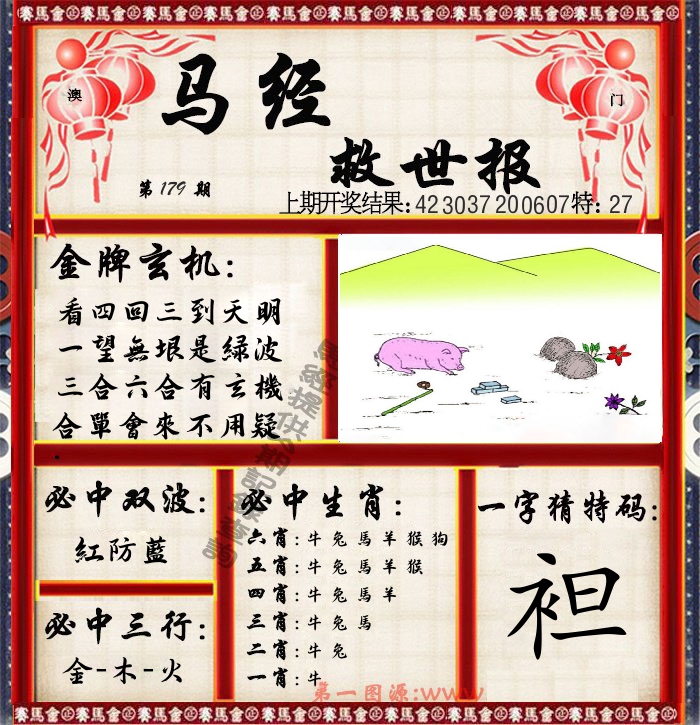 賽馬會正賽馬會正賽馬會正賽馬會正賽馬會正賽馬會正賽馬會正賽馬會
澳
门
马经
救世报
第179期
上期开奖结果:42 30 37 20 06 07 特: 27
金牌玄机:
看四回三到天明
一望無垠是綠波
三合六合有玄機
合單會來不用疑
必中双波:
紅防藍
必中三行:
金-木-火
必中生肖:
六肖:牛兔馬羊猴狗
五肖:牛兔馬羊猴
四肖:牛兔馬羊
三肖:牛兔馬
二肖:牛兔
一肖:牛
一字猜特码:
袒
第一图源:www